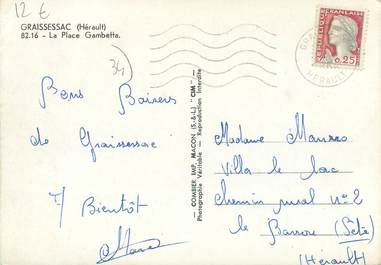 12 €
GRAISSESSAC (Hérault)
82.16 - La Place Gambetta.
34
Bons Baisers
de Graissessac
à Bientôt
— COMBIER IMP. MACON (S.-&-L.) "CIM" —
Photographie Véritable — Reproduction Interdite
REPUBLIQUE FRANÇAISE
0,25
HERAULT
Madame
Villa le lac
chemin rural n°2
le Barrou (Sète)
(Hérault)